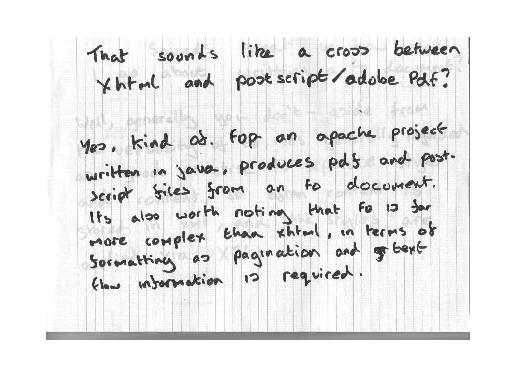 That sounds like a cross between
Xhtml and postscript/adobe Pdf?
Yes, kind of. Fop an apache project
written in java, produces pdf and post-
script files from an fo document.
Its also worth noting that Fo is far
more complex than xhtml, in terms of
formatting as pagination and text
flow information is required.